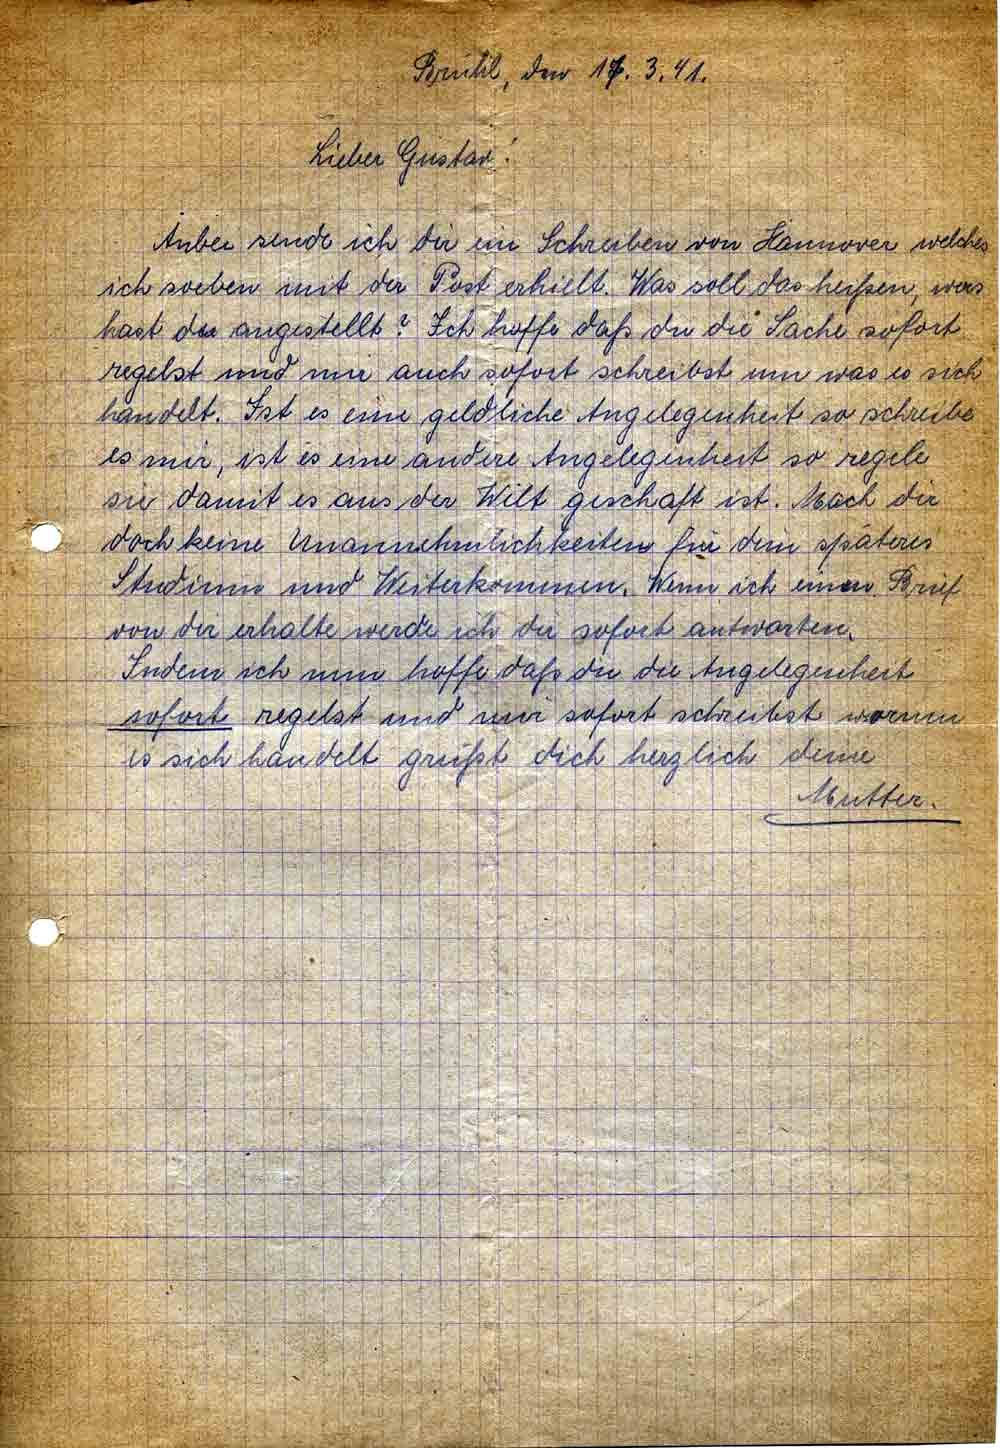 Brühl, den 17. 3. 41.
Lieber Gustav!
Anbei sende ich dir ein Schreiben von Hannover welches
ich soeben mit der Post erhielt. Was soll das heißen, was
hast du angestellt? Ich hoffe daß du die Sache sofort
regelst und mir auch sofort schreibst um was es sich
handelt. Ist es eine geldliche Angelegenheit so schreibe
es mir, ist es eine andere Angelegenheit so regele
sie damit es aus der Welt geschaft ist. Mach dir
doch keine Unannehmlichkeiten für dein späteres
Studium und Weiterkommen. Wenn ich einen Brief
von dir erhalte werde ich dir sofort antworten.
Indem ich nun hoffe daß du die Angelegenheit
sofort regelst und mir sofort schreibst worum
es sich handelt grüßt dich herzlich deine
Mutter.